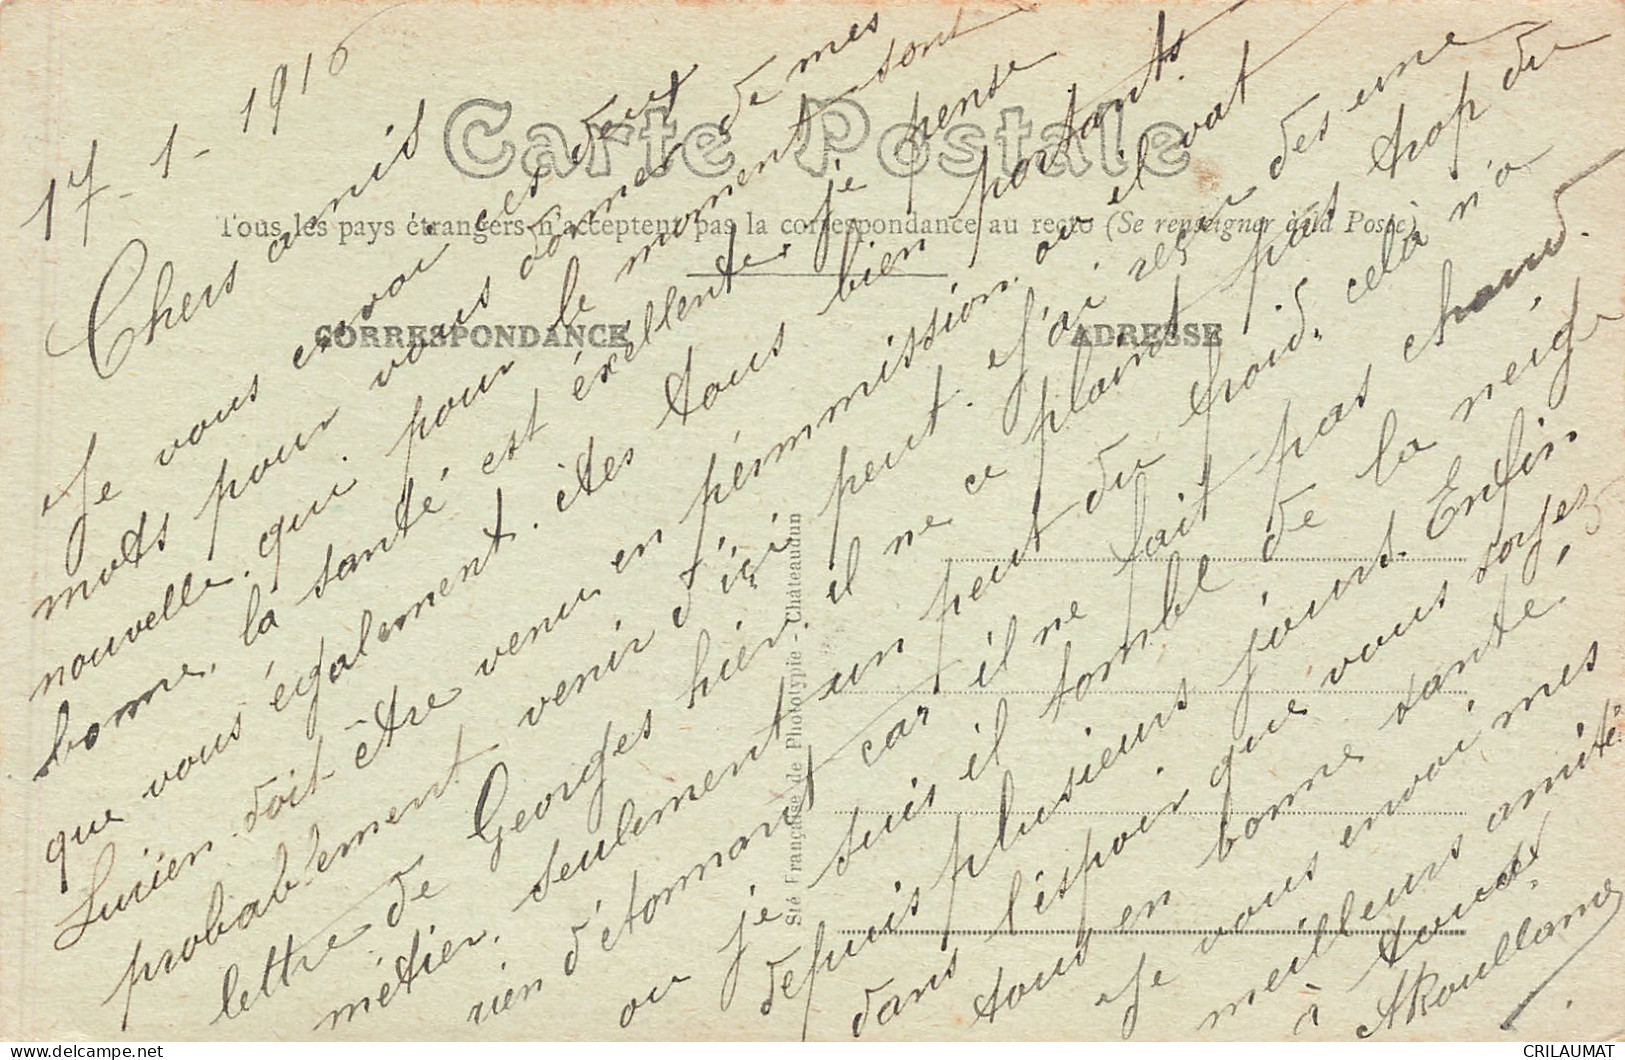 Carte Postale
Tous les pays étrangers n'acceptent pas la correspondance au recto (Se renseigner à la Poste)
CORRESPONDANCE
ADRESSE
Sté Française de Phototypie - Châteaudun
17-1-1916
Chers amis
Je vous envoi ces deux
mots pour vous donner de mes
nouvelle. qui. pour le moment sont
bonne, la santé est éxellente, je pense
que vous également. êtes tous bien portants.
Lucien doit être venu en pérmmission ou il vat
probablement venir d'içi peut. J'ai reçu des une
lettre de Georges hier. il ne ce plaint pas trop du
métier. seulement un peut du froid, celà n'a
rien d'étonnant car il ne fait pas chaud.
ou je suis il tombe de la neige
depuis plusieurs jours. Enfin
dans l'éspoir que vous soyez
tous en bonne santé,
Je vous envoi mes
meilleurs amitié
à tous.